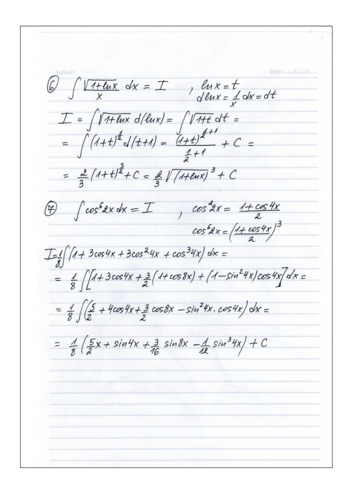 ⑥ ∫ √(1+lnx)/x dx = I , lnx = t
dlnx = 1/x dx = dt
I = ∫√(1+lnx) d(lnx) = ∫√(1+t) dt =
= ∫(1+t)^(1/2) d(t+1) = (1+t)^(1/2+1)/(1/2+1) + C =
= 2/3 (1+t)^(3/2) + C = 2/3 √(1+lnx)^3 + C
⑦ ∫cos^6 2x dx = I , cos^2 2x = (1+cos4x)/2
cos^6 2x = ((1+cos4x)/2)^3
I = 1/8 ∫(1 + 3cos4x + 3cos^2 4x + cos^3 4x) dx =
= 1/8 ∫[1+3cos4x + 3/2 (1+cos8x) + (1-sin^2 4x)cos4x] dx =
= 1/8 ∫(5/2 + 4cos4x + 3/2 cos8x - sin^2 4x. cos4x) dx =
= 1/8 (5/2 x + sin4x + 3/16 sin8x - 1/12 sin^3 4x) + C